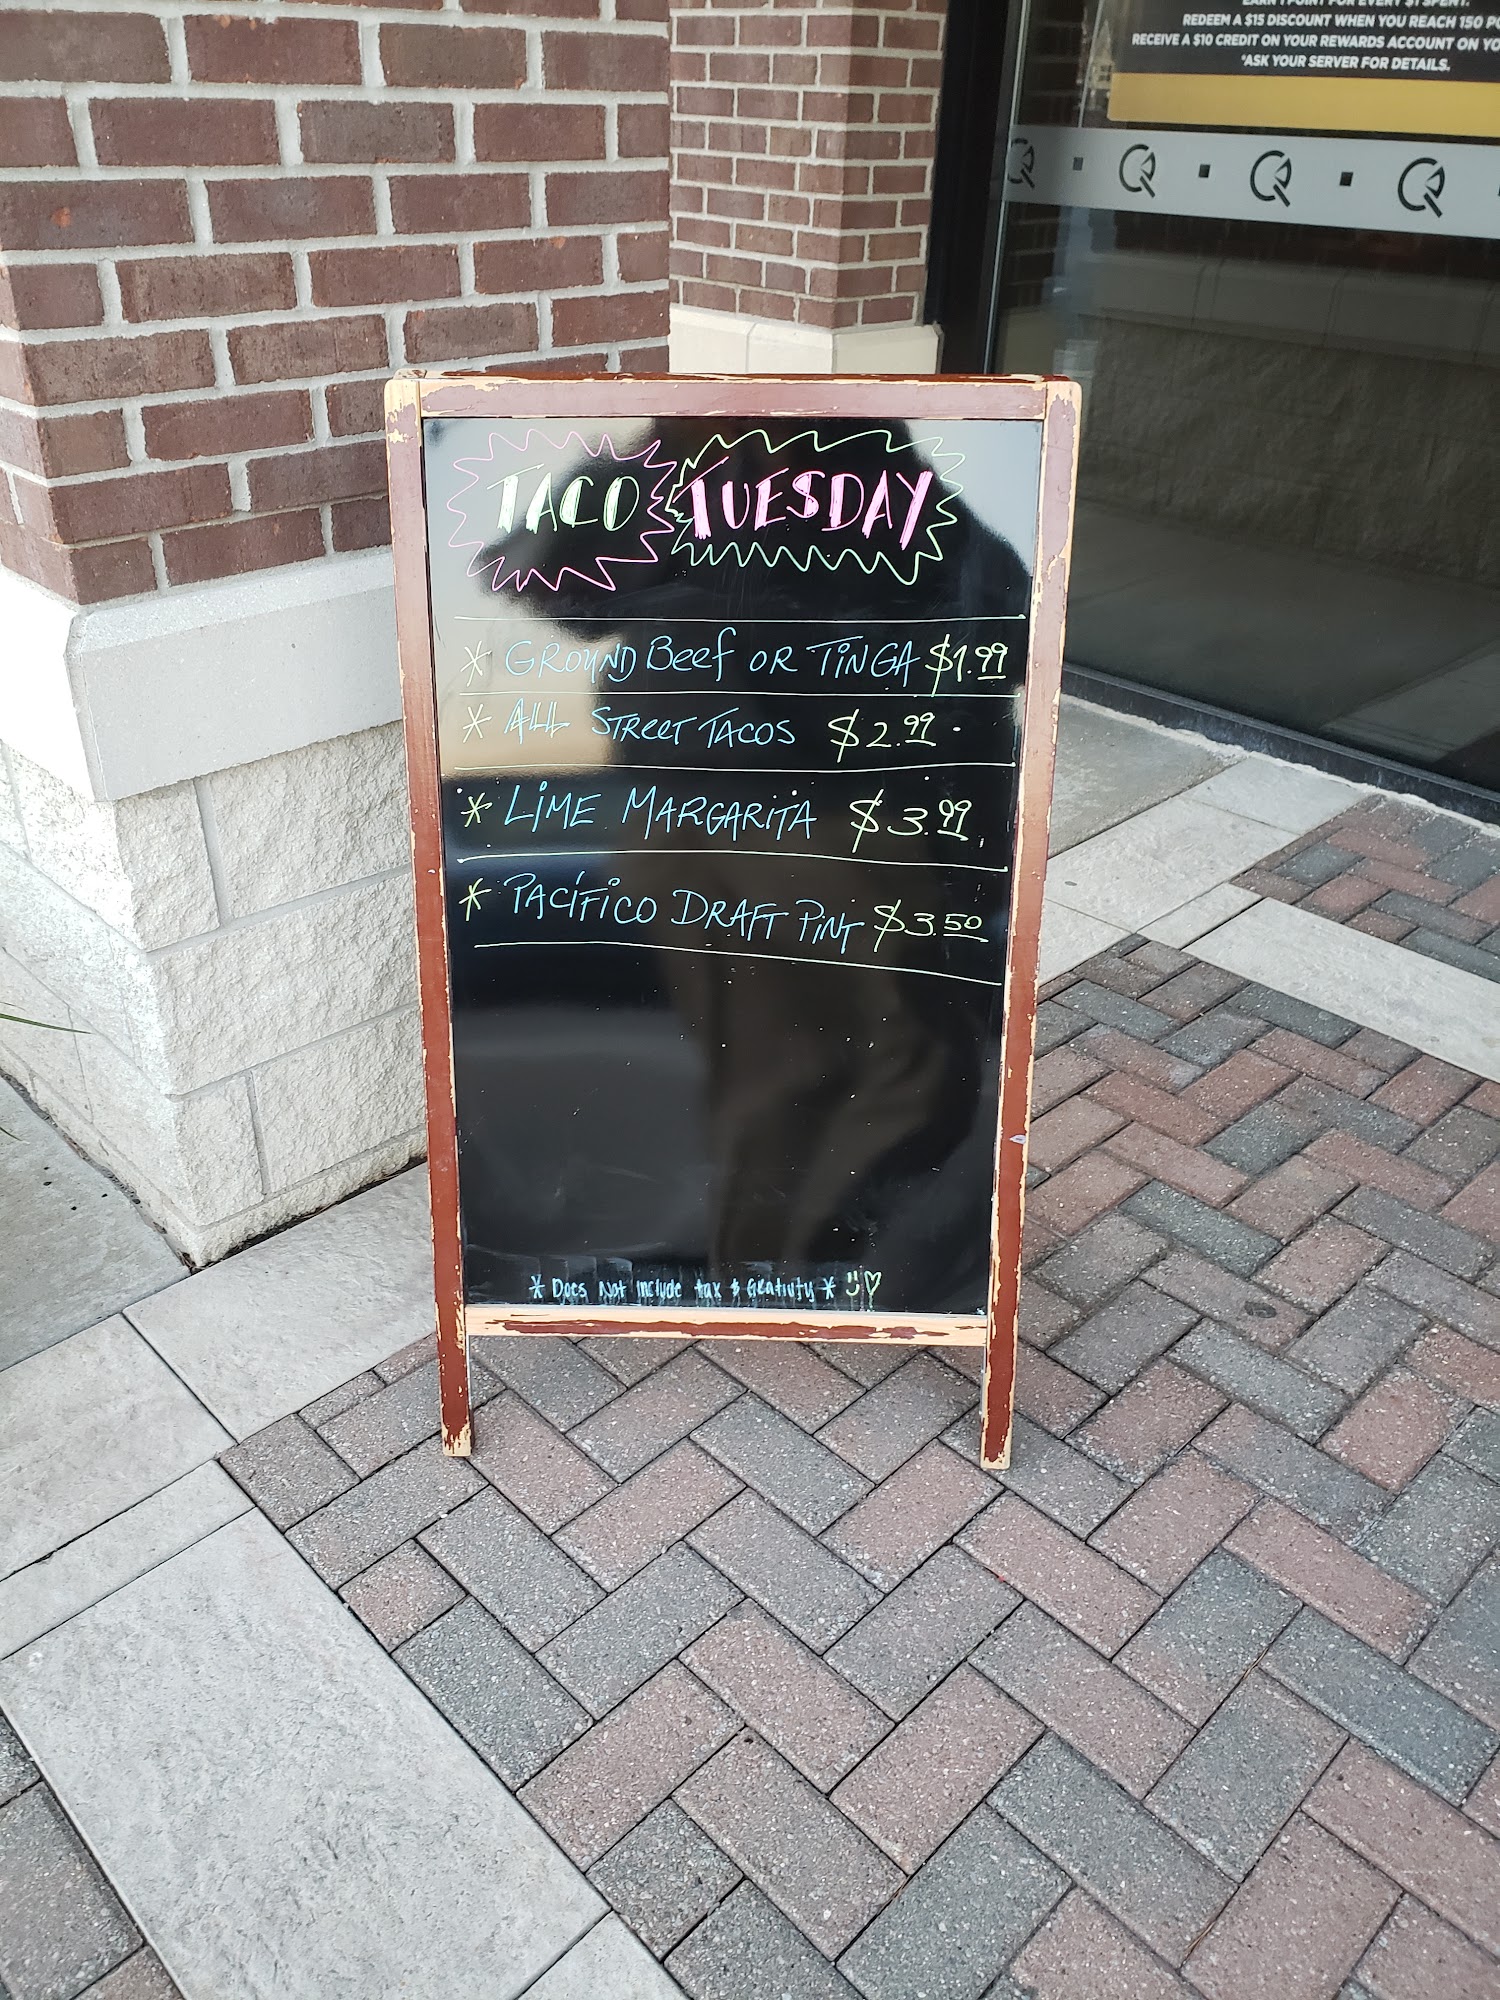 EARN 1 POINT FOR EVERY $1 SPENT.
REDEEM A $15 DISCOUNT WHEN YOU REACH 150 PO
RECEIVE A $10 CREDIT ON YOUR REWARDS ACCOUNT ON YO
*ASK YOUR SERVER FOR DETAILS.
TACO TUESDAY
* GROUND Beef OR TINGA $1.99
* ALL STREET TACOS $2.99
* LIME MARGARITA $3.99
* PACÍFICO DRAFT PINT $3.50
* Does Not include tax & Grativity *